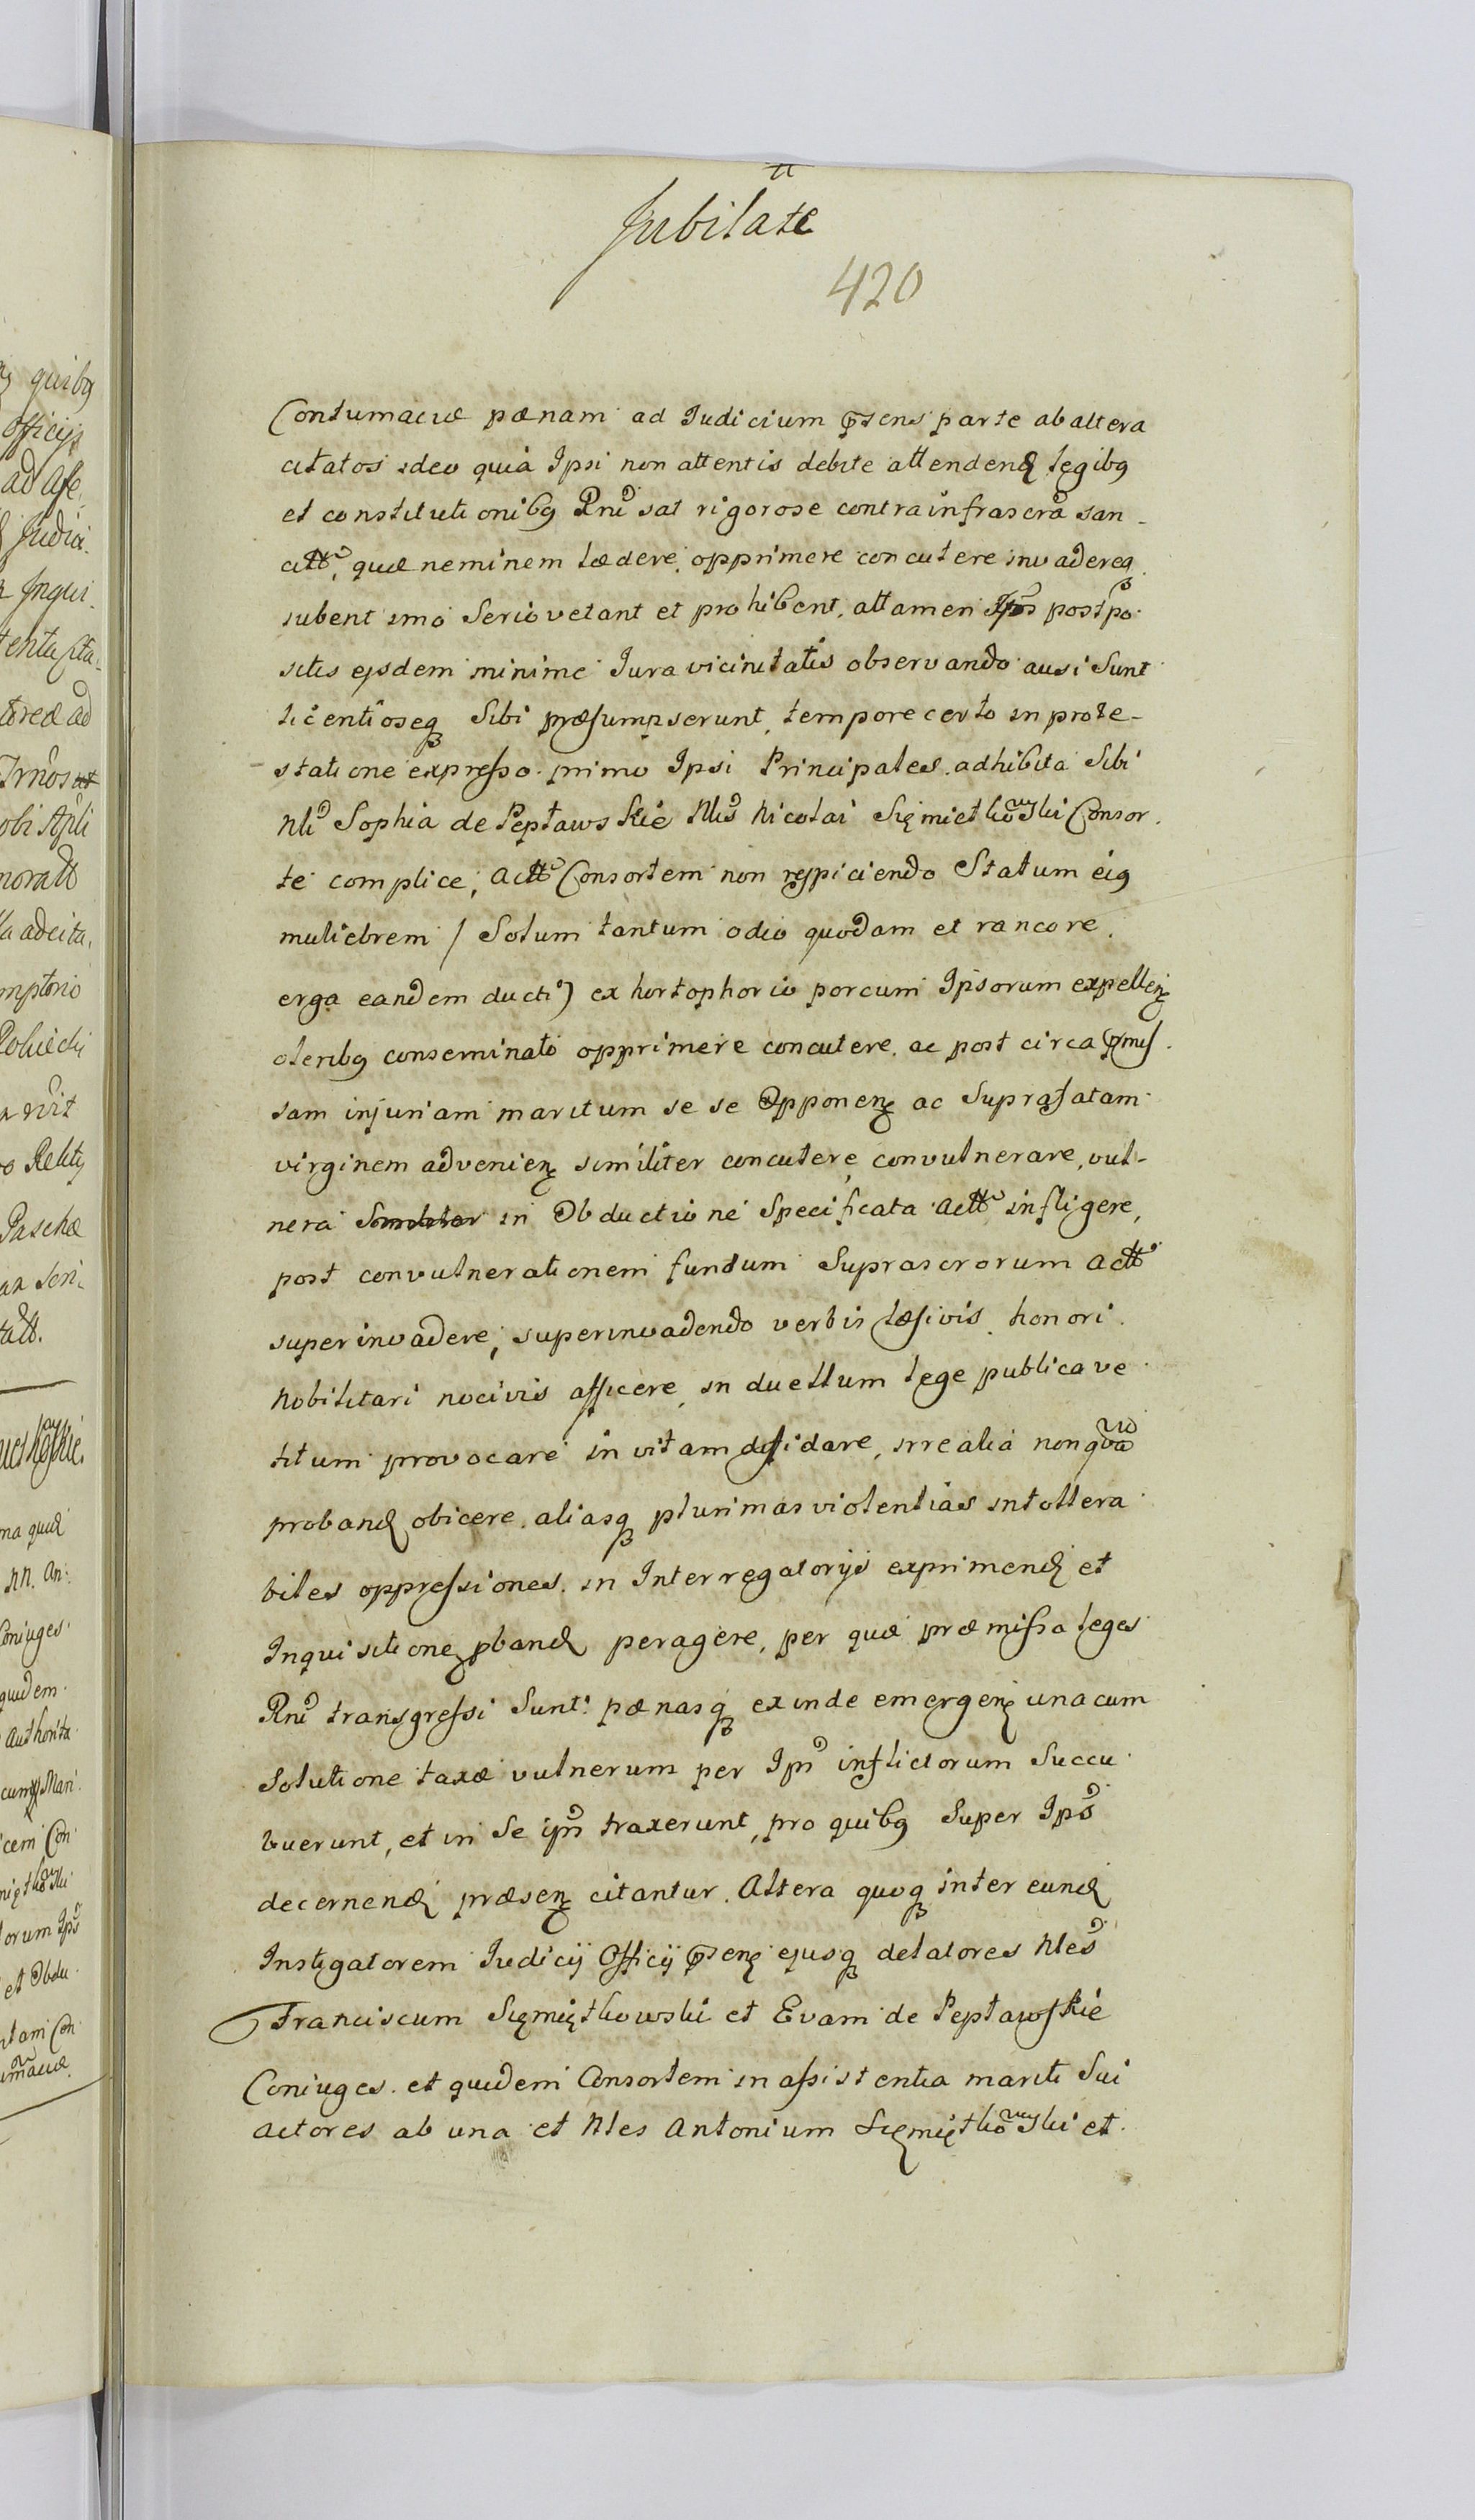 Jubilate
420
Contumaciæ pænam ad Iudicium psens parte ab altera
citatos ideo quia Ipsi non attentis debite attenden legibq
et constitutionibq Rni sat rigorose contra infrascra san-
citt, quæ neminem lædere, opprimere concutere invadereq
iubent imo Serio vetant et prohibent, attamen Ips postpo
sitis ejsdem minime Iura vicinitatis observando ausi Sunt
licentioseq Sibi præsumpserunt, tempore certo in prote-
statione expresso primo Ipsi Principales adhibita Sibi
Nli Sophia de Peptawskie Nlis Nicolai Sięmiętkowski Consor
te complice, Actt Consortem non respiciendo Statum eiq
muliebrem / Solum tantum odio quodam et rancore
erga eandem ducti) ex hortophorio porcum Ipsorum expellen
oleribq conseminato opprimere concutere, ac post circa pmis
sam injuriam maritum se se Opponen ac Suprafatam
virginem advenien similiter concutere, convulnerare, vul-
nera in Obductione Specificata Actt infligere,
post convulnerationem fundum Suprascrorum Actt
superinvadere, superinvadendo verbis læsivis honori
Nobilitari nocivis afficere, in duellum lege publica ve
titum provocare in vitam difidare, irrealia nonqva
proband obicere, aliasq plurimas violentias intollera
biles oppressiones in Interregatorijs exprimend et
Inquisitione pband peragere, per quæ præmissa leges
Rni transgressi Sunt. pænasq exinde emergen una cum
Solutione taxæ vulnerum per Ipss inflictorum Succu
buerunt, et in Se ipss traxerunt, pro quibq Super Ips
decernend præsen citantur. Altera quoq inter eund
Instigatorem Iudicij Officij psen ejusq delatores Nles
Franciscum Sięmiętkowski et Evam de Peptawskie
Coniuges et quidem Consortem in assistentia mariti Sui
Actores ab una et Nles Antonium Sięmiętkowski et